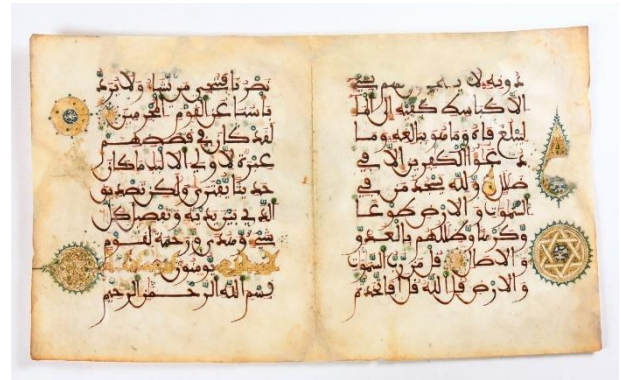 دونه لا
الا كبسط كفيه الى الما
ليبلغ فاه وما هو ببلغه وما
دعؤا الكفرين الا في
ضلل ولله يسجد من في
السموت والارض طوعا
وكرها وظللهم بالغدو
والاصال قل من رب السموت
والارض قل الله قل افاتخذتم
نصرنا فننجي من نشا ولا يرد
باسنا عن القوم المجرمين
لقد كان في قصصهم
عبرة لاولي الالبب ما كان
حديثا يفترى ولكن تصديق
الذي بين يديه وتفصيل كل
شيء وهدى ورحمة لقوم
يومنون
بسم الله الرحمن الرحيم